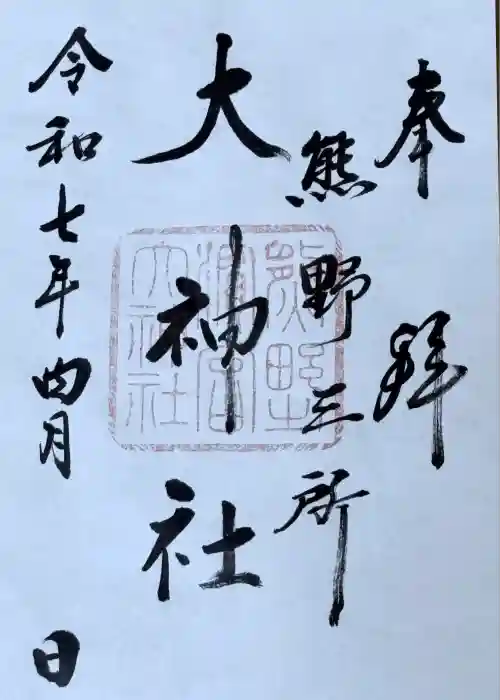 奉拜
熊野三所
大神社
令和七年四月 日
熊野
濱宮
大神社